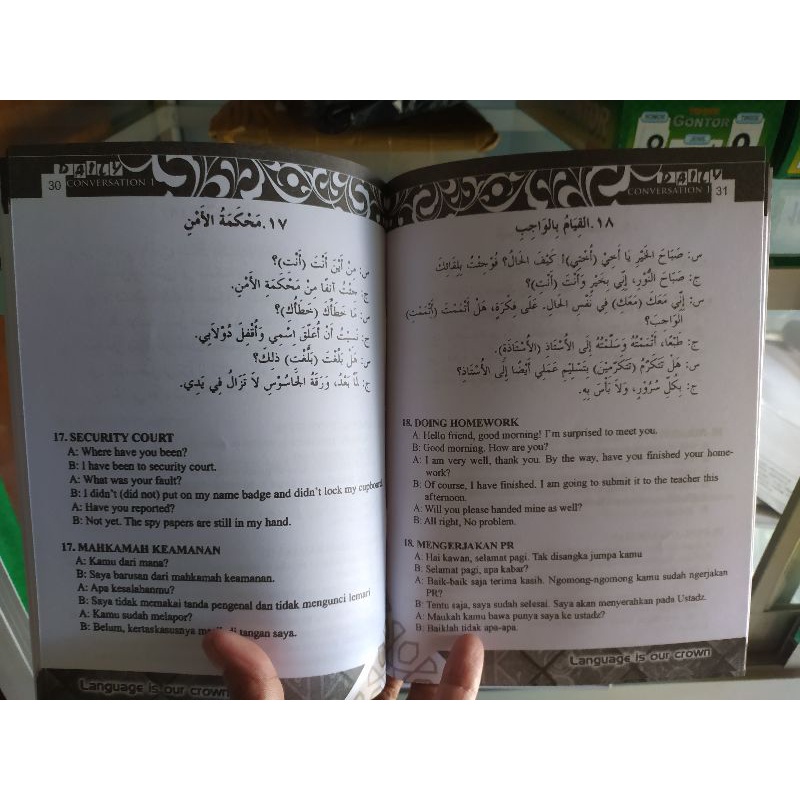 GONTOR
30
DAILY
CONVERSATION 1
١٧. مَحْكَمَةُ الأَمْنِ
س: مِنْ أَيْنَ أَنْتَ (أَنْتِ)؟
ج: جِئْتُ آنِفًا مِنْ مَحْكَمَةِ الأَمْنِ.
س: مَا خَطَأُكَ (خَطَأُكِ)؟
ج: نَسِيتُ أَنْ أُعَلِّقَ اسْمِي وَأُقْفِلَ دُوْلَابِي.
س: هَلْ بَلَّغْتَ (بَلَّغْتِ) ذلِكَ؟
ج: لَمَّا بَعْدُ، وَرَقَةُ الجَاسُوْسِ لاَ تَزَالُ فِي يَدِي.
17. SECURITY COURT
A: Where have you been?
B: I have been to security court.
A: What was your fault?
B: I didn't (did not) put on my name badge and didn't lock my cupboard
A: Have you reported?
B: Not yet. The spy papers are still in my hand.
17. MAHKAMAH KEAMANAN
A: Kamu dari mana?
B: Saya barusan dari mahkamah keamanan.
A: Apa kesalahanmu?
B: Saya tidak memakai tanda pengenal dan tidak mengunci lemari
A: Kamu sudah melapor?
B: Belum, kertaskasusnya masih di tangan saya.
Language is our crown
DAILY
CONVERSATION 1
31
١٨. القِيَامُ بِالوَاجِبِ
س: صَبَاحَ الخَيْرِ يَا أَخِيْ (أُخْتِيْ)! كَيْفَ الحَالُ؟ فُوْجِئْتُ بِلِقَائِكَ
ج: صَبَاحَ النُّوْرِ، إِنِّي بِخَيْرٍ وَأَنْتَ (أَنْتِ)؟
س: إِنِّي مَعَكَ (مَعَكِ) فِي نَفْسِ الحَالِ. عَلَى فِكْرَةٍ، هَلْ أَتْمَمْتَ (أَتْمَمْتِ)
الوَاجِبَ؟
ج: طَبْعًا، أَتْمَمْتُهُ وَسَلَّمْتُهُ إِلَى الأُسْتَاذِ (الأُسْتَاذَةِ).
س: هَلْ تَتَكَرَّمُ (تَتَكَرَّمِيْنَ) بِتَسْلِيْمِ عَمَلِي أَيْضًا إِلَى الأُسْتَاذِ؟
ج: بِكُلِّ سُرُوْرٍ، وَلاَ بَأْسَ بِهِ.
18. DOING HOMEWORK
A: Hello friend, good morning! I'm surprised to meet you.
B: Good morning. How are you?
A: I am very well, thank you. By the way, have you finished your home-
work?
B: Of course, I have finished. I am going to submit it to the teacher this
afternoon.
A: Will you please handed mine as well?
B: All right, No problem.
18. MENGERJAKAN PR
A: Hai kawan, selamat pagi. Tak disangka jumpa kamu
B: Selamat pagi, apa kabar?
A: Baik-baik saja terima kasih. Ngomong-ngomong kamu sudah ngerjakan
PR?
B: Tentu saja, saya sudah selesai. Saya akan menyerahkan pada Ustadz.
A: Maukah kamu bawa punya saya ke ustadz?
B: Baiklah tidak apa-apa.
Language is our crown